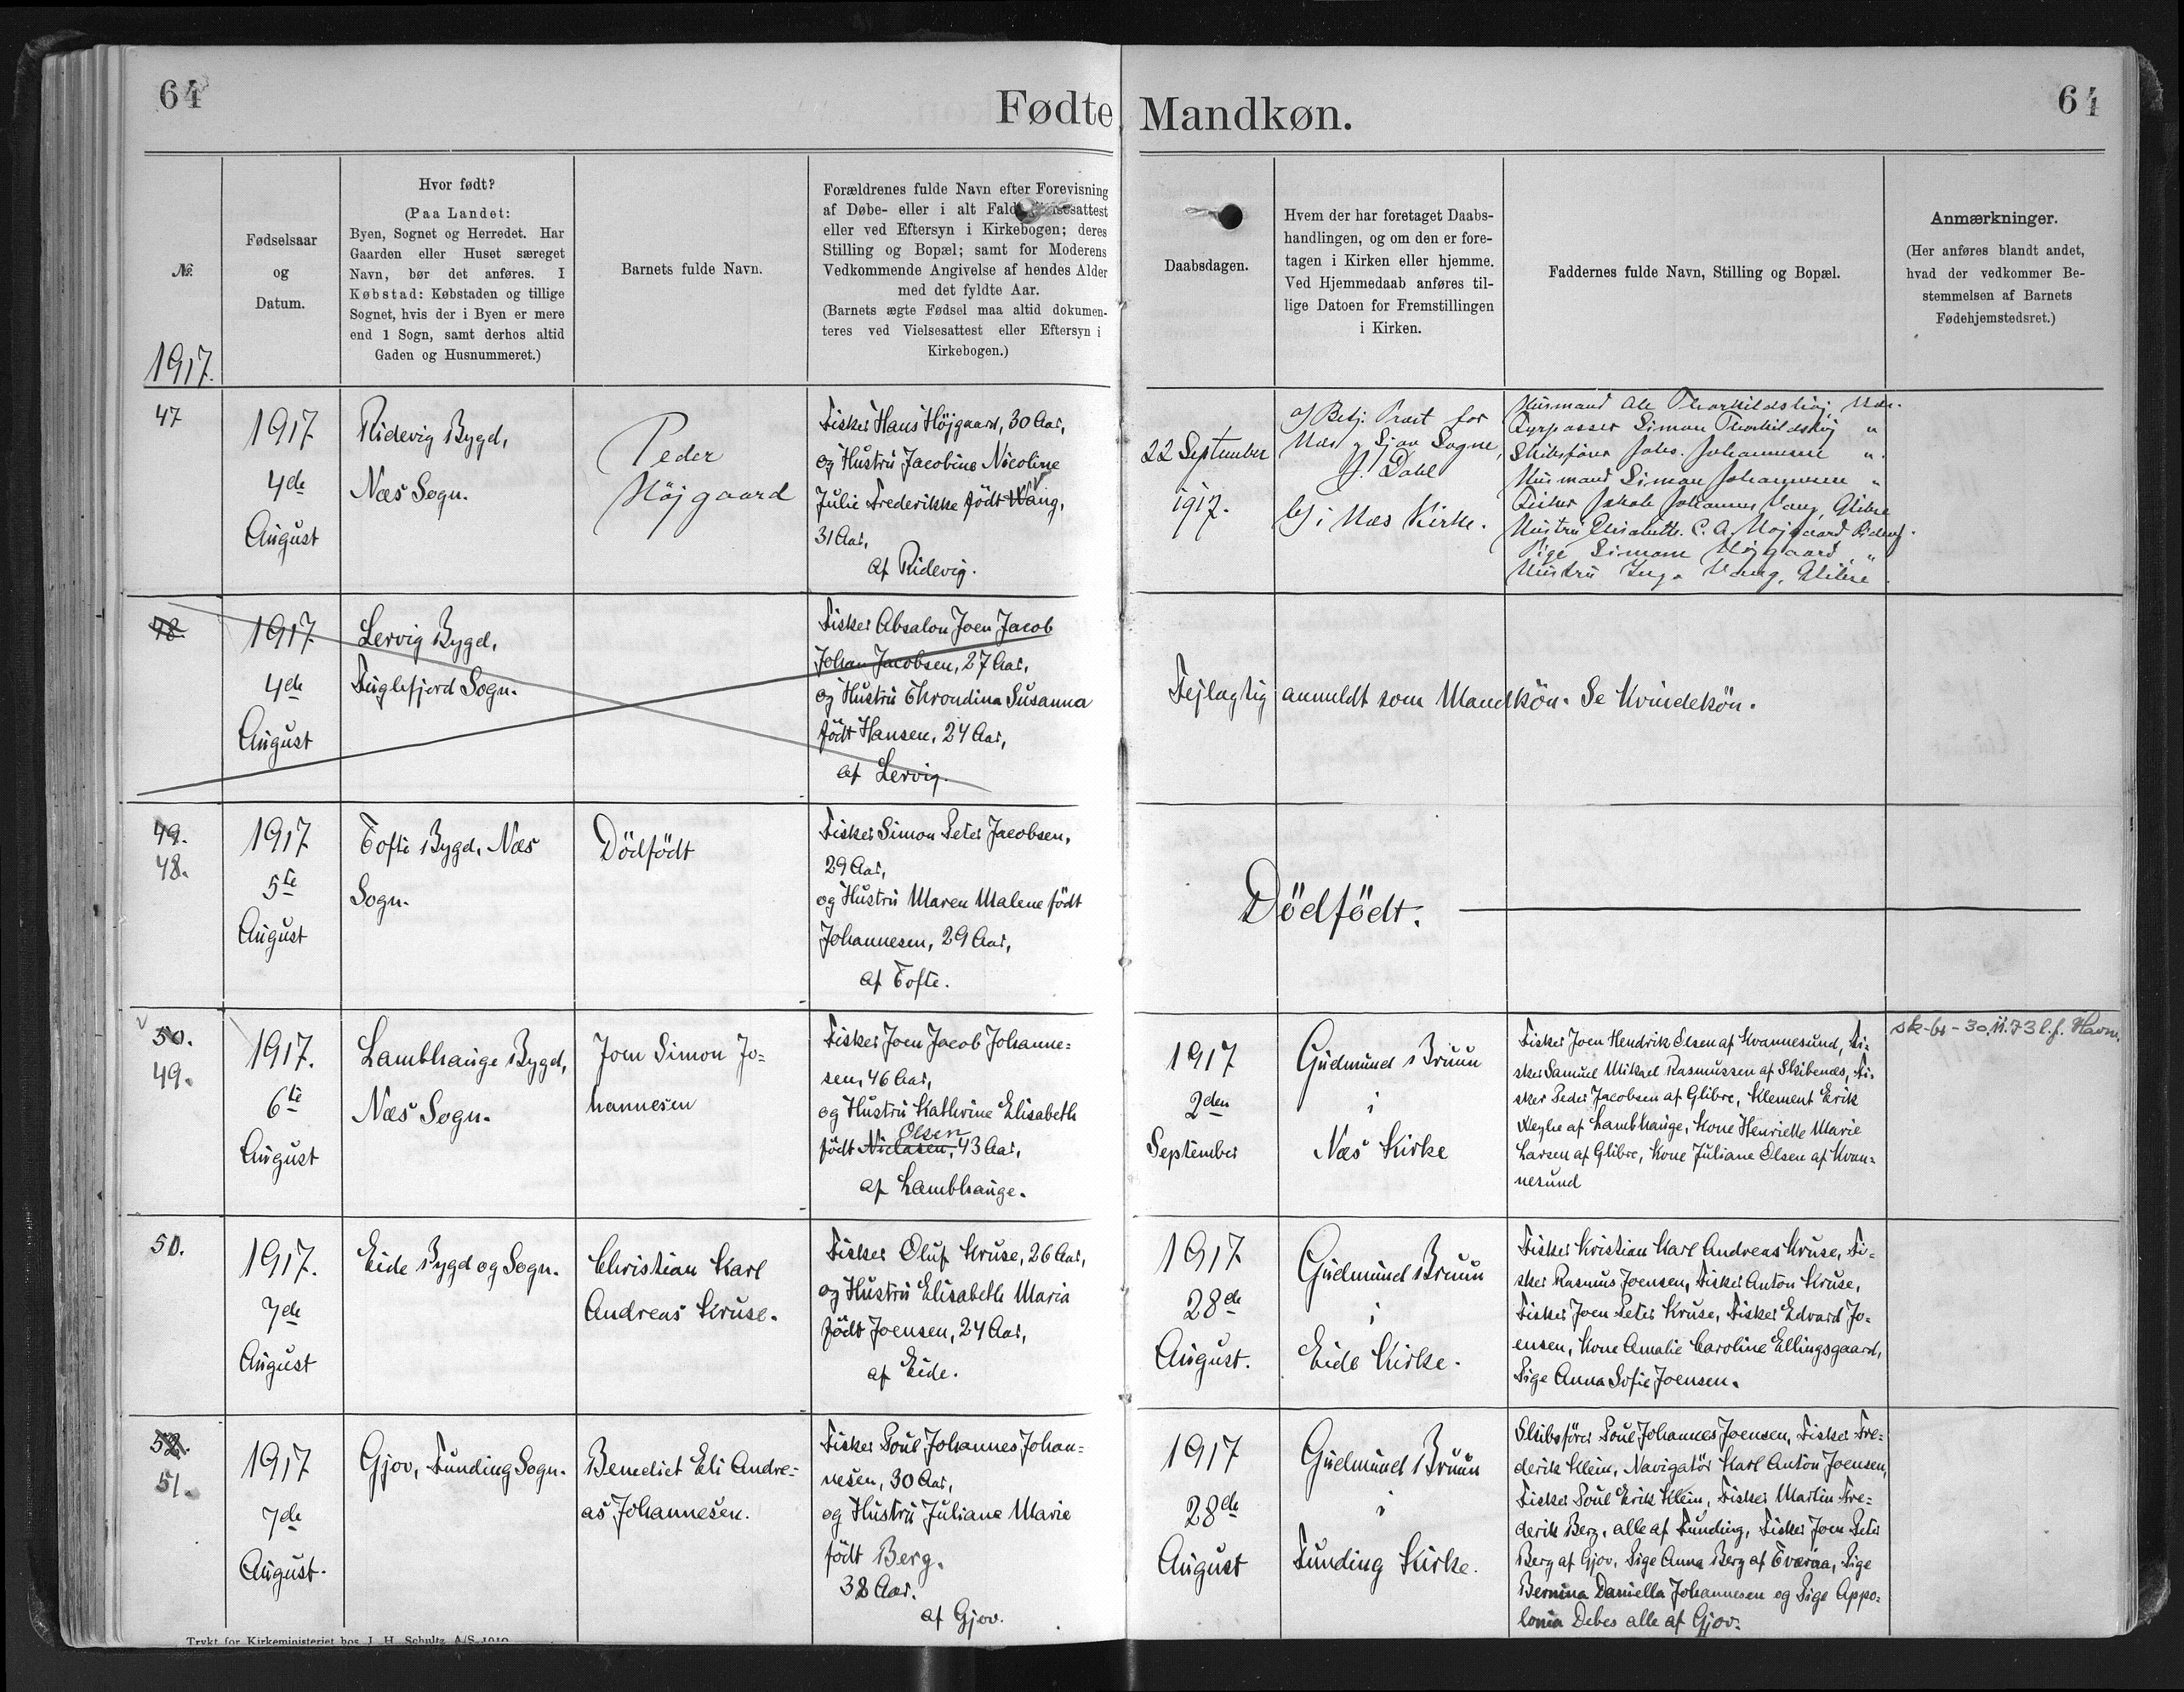 64
Fødte Mandkøn.
64
№
Fødselsaar
og
Datum.
Hvor født?
(Paa Landet:
Byen, Sognet og Herredet. Har
Gaarden eller Huset særeget
Navn, bør det anføres. I
Købstad: Købstaden og tillige
Sognet, hvis der i Byen er mere
end 1 Sogn, samt derhos altid
Gaden og Husnummeret.)
Barnets fulde Navn.
Forældrenes fulde Navn efter Forevisning
af Døbe- eller i alt Fald
eller ved Eftersyn i Kirkebogen; deres
Stilling og Bopæl; samt for Moderens
Vedkommende Angivelse af hendes Alder
med det fyldte Aar.
(Barnets ægte Fødsel maa altid dokumen-
teres ved Vielsesattest eller Eftersyn i
Kirkebogen.)
Daabsdagen.
Hvem der har foretaget Daabs-
handlingen, og om den er fore-
tagen i Kirken eller hjemme.
Ved Hjemmedaab anføres til-
lige Datoen for Fremstillingen
i Kirken.
Faddernes fulde Navn, Stilling og Bopæl.
Anmærkninger.
(Her anføres blandt andet,
hvad der vedkommer Be-
stemmelsen af Barnets
Fødehjemstedsret.)
1917.
47
1917
4de
August
Ridevig Bygd,
Næs Sogn.
Peder
Höjgaard
Fisker Hans Höjgaard, 30 Aar,
og Hustru Jacobine Nicoline
Julie Frederikke födt Wang,
31 Aar,
af Ridevig.
22 September
1917.
Betj. Præst for
Næs og Sjov Sogne,
J. Dahl
i Næs Kirke.
Husmand Ole Thorkildshöj, Næs.
Dyrpasser Simon Thorkildshöj "
Skibsförer Johs. Johannesen "
Husmand Simon Johannesen "
Fisker Jakob Johannes Vang, Glibre
Hustru Elisabeth C. A. Højgaard Ridevig.
Pige Simone Höjgaard "
Hustru Inga Vang, Glibre
48.
1917
4de
August
Lervig Bygd,
Fuglefjord Sogn.
Fisker Absalon Joen Jacob
Johan Jacobsen, 27 Aar,
og Hustru Throndina Susanna
födt Hansen, 24 Aar,
af Lervig.
Fejlagtig anmeldt som Mandkön. Se Kvindekön.
49.
48.
1917
5te
August
Tofte Bygd, Næs
Sogn.
Dödfödt
Fisker Simon Peter Jacobsen,
29 Aar,
og Hustru Maren Malene födt
Johannesen, 29 Aar,
af Tofte.
Dödfödt.
50.
49.
1917.
6te
August
Lambhauge Bygd,
Næs Sogn.
Joen Simon Jo-
hannesen
Fisker Joen Jacob Johanne-
sen, 46 Aar,
og Hustru Kathrine Elisabeth
Olsen
födt Niclasen, 43 Aar,
af Lambhauge.
1917
2den
September
Gudmund Bruun
i
Næs Kirke
Fisker Joen Hendrik Olsen af Kvannesund, Fi-
sker Samuel Mikael Rasmussen af Skibenæs, Fi-
sker Peder Jacobsen af Glibre, Klement Erik
af Lambhauge, Kone Henriette Marie
Larsen af Glibre, Kone Juliane Olsen af Kvan-
nesund
sk-br - 30.11.73 l.f. Havn.
50.
1917.
7de
August
Eide Bygd og Sogn.
Christian Karl
Andreas Kruse.
Fisker Oluf Kruse, 26 Aar,
og Hustru Elisabeth Maria
födt Joensen, 24 Aar,
af Eide.
1917
28de
August.
Gudmund Bruun
i
Eide Kirke.
Fisker Kristian Karl Andreas Kruse, Fi-
sker Rasmus Joensen, Fisker Anton Kruse,
Fisker Joen Peter Kruse, Fisker Edvard Jo-
ensen, Kone Amalie Caroline Ellingsgaard,
Pige Anna Sofie Joensen.
52.
51.
1917
7de
August.
Gjov, Funding Sogn.
Benedict Eli Andre-
as Johannesen.
Fisker Poul Johannes Johan-
nesen, 30 Aar,
og Hustru Juliane Marie
födt Berg.
38 Aar.
af Gjov.
1917
28de
August
Gudmund Bruun
i
Funding Kirke.
Skibsförer Poul Johannes Joensen, Fisker Fre-
derik Klein, Navigatör Karl Anton Joensen,
Fisker Poul Erik Klein, Fisker Martin Fre-
derik Berg, alle af Funding, Fisker Joen Peter
Berg af Gjov, Pige Anna Berg af Tværaa, Pige
Bernina Daniella Johannesen og Pige Appo-
lonia Debes alle af Gjov.
Trykt for Kirkeministeriet hos J. H. Schultz A/S